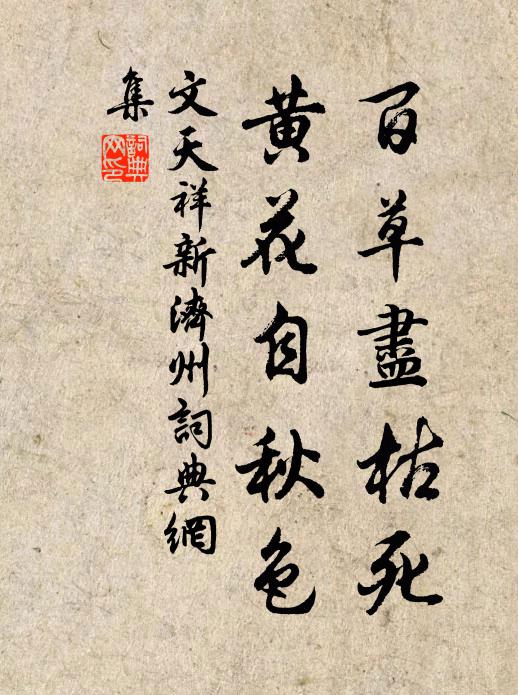 百草盡枯死
黃花自秋色
文天祥新濟州詞典網
集
詞典
網印